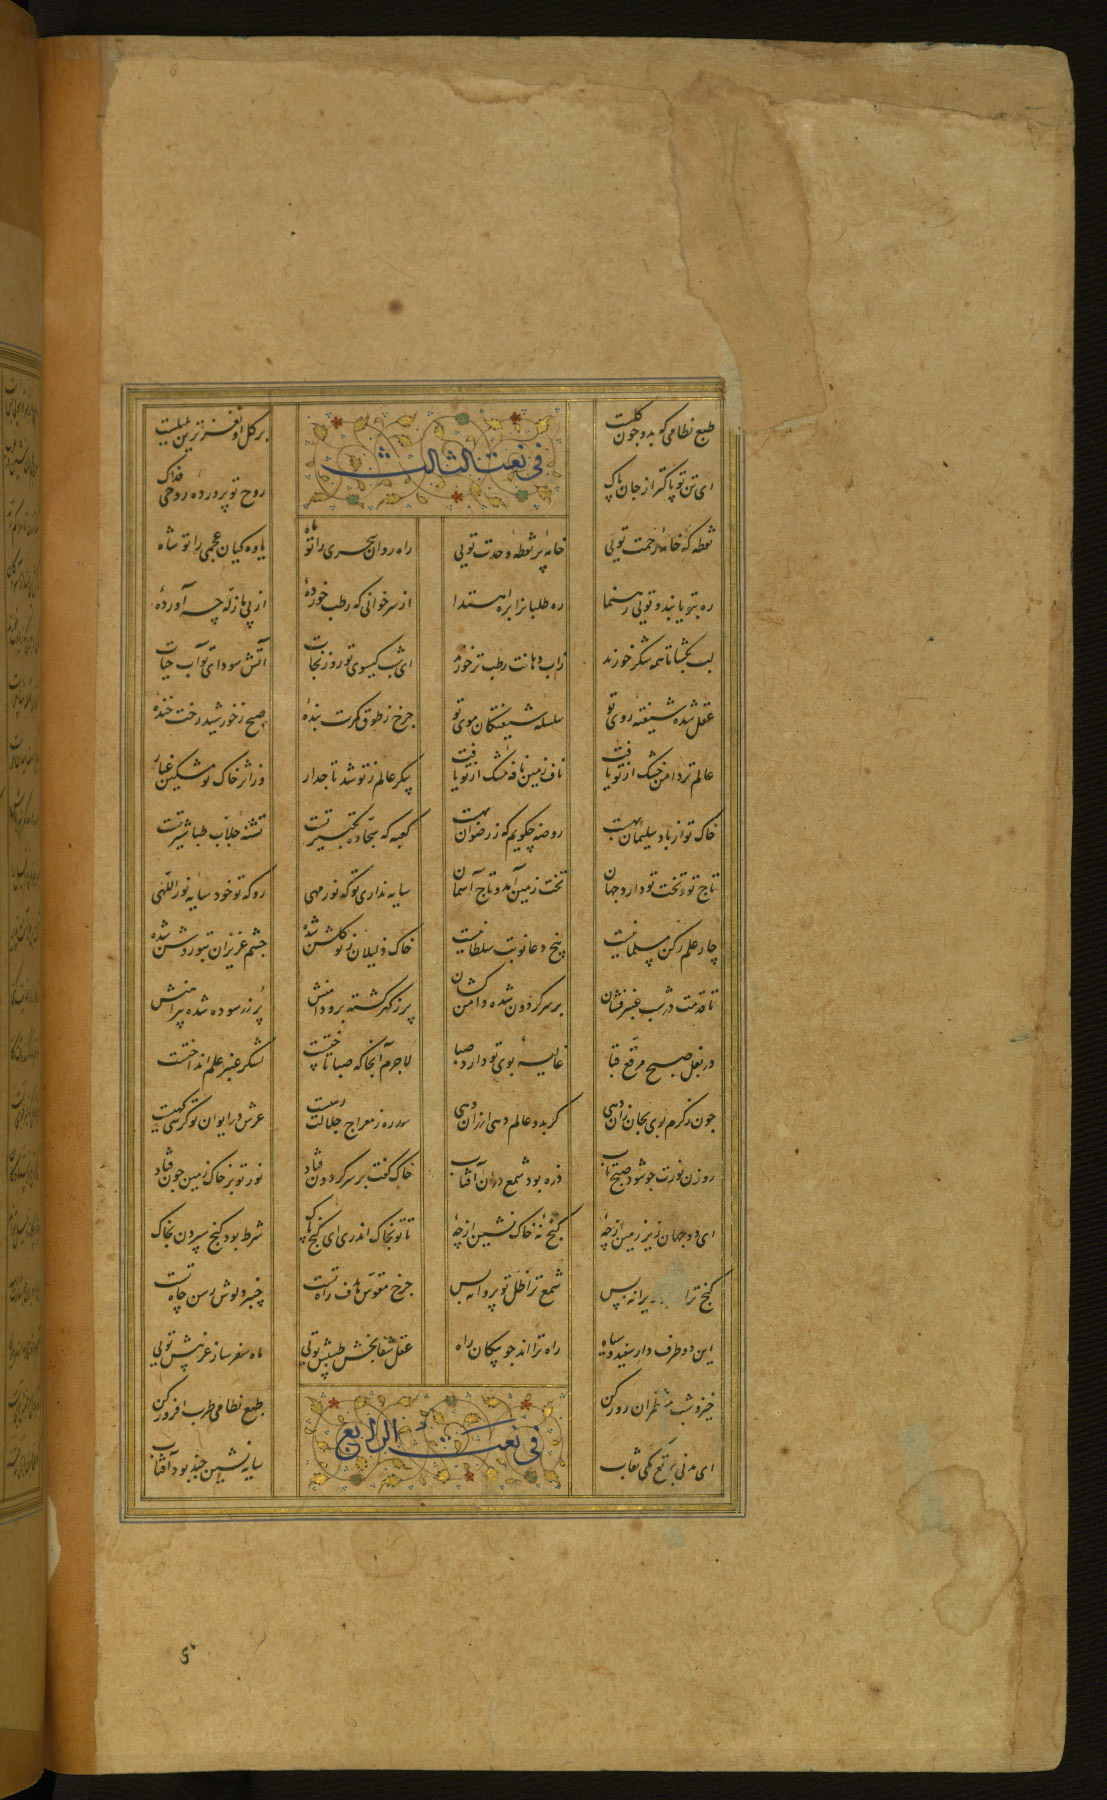 طبع نظامی که بدو چون گلست بر گل او نغز ترین بلبلست
فی نعت الثالث
ای تن تو پاکتر از جان پاک روح تو پرورده روحی فداک
نقطه گه خانه رحمت تویی خانه بر نقطه وحدت تویی راه روان سحری را تو ماه یاوه کیان عجمی را تو شاه
ره بتو یابند و تویی رهنما ره طلبانرا بره اهتدا از سر خوانی که رطب خورده از پی ما زله چه آورده
لب بگشا تا همه شکر خورند زاب دهانت رطب تر خورند ای شب گیسوی تو روز نجات آتش سودای تو آب حیات
عقل شده شیفته روی تو سلسله شیفتگان موی تو چرخ ز طوق کمرت بنده صبح ز خورشید رخت خنده
عالم تر دامن خشک از تو یافت ناف زمین نافه مشک از تو یافت پیکر عالم ز تو شد تاجدار وز اثر خاک تو مشکین غبار
خاک تو از باد سلیمان بهست روضه چگویم که ز رضوان بهست کعبه که سجاده تکبیر تست تشنه جلاب طباشیر تست
تاج تو و تخت تو دارد جهان تخت زمین آمد و تاج آسمان سایه نداری تو که نور مهی رو که تو خود سایه نور اللهی
چار علم رکن مسلمانیت پنج دعا نوبت سلطانیت خاک ذلیلان ز تو گلشن شده چشم عزیزان بتو روشن شده
تا قدمت در شب عنبر فشان بر سر گردون شده دامن کشان پر ز گهر گشته برو دامنش پر زر سوده شده پیراهنش
در بغل صبح مرقع قبا غالیه بوی تو دارد صبا لاجرم آنجا که صبا تاختست لشکر عنبر علم انداختست
چون ز کرم بوی بجان زان دهی گر بدو عالم دهی ارزان دهی سدره ز معراج جلالت رهیست عرش در ایوان تو کرسی نهیست
روزن نورت چو شود صبح تاب ذره بود شمع دران آفتاب خاک کفت بر سر گردون فتاد نور تو بر خاک زمین چون فتاد
ای دو جهان زیر زمین از چه گنج نه خاک نشین از چه تا تو بخاک اندری ای گنج پاک شرط بود گنج سپردن بخاک
گنج ترا ویرانه بس شمع ترا ظل تو پروانه بس چرخ مقوس هدف راه تست چنبر دلوش رسن چاه تست
این دو طرف دار سفید و سیاه راه ترا اند چو پیکان راه عقل شفابخش طبیبش تویی ماه سفر ساز غریبش تویی
خیز و شب منتظران روز کن طبع نظامی طرب افروز کن
فی نعت الرابع
ای مدنی برقع مکی نقاب سایه نشین چند بود آفتاب